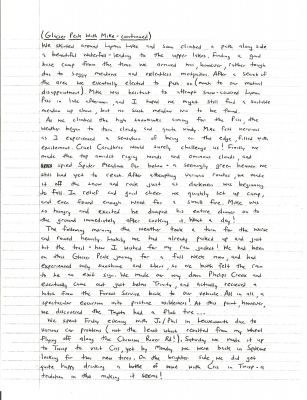 (Glacier Peak With Mike - continued)
We skirted around Lyman Lake and soon climbed a path along side
a beautiful waterfall leading to the upper lakes. Finding a good
base camp from the time we arrived was, however, rather tough
due to soggy meadows and relentless mosquitos. After a search of
the area we eventually elected to push on (much to our mutual
disappointment). Mike was hesitant to attempt snow-covered Lyman
Pass in late afternoon, and I hoped we might still find a suitable
meadow up above, but no such meadow was to be found.
As we climbed the high snowbanks aiming for the Pass, the
weather began to turn cloudy and quite windy. Mike felt nervous
as I experienced a sensation of being on the edge, filled with
excitement. Cruel Conditions would surely challenge us! Finally, we
made the top amidst raging winds and ominous clouds, and
spied Spider Meadow far below - a seemingly green heaven we
still had yet to reach. After attempting various routes, we made
it off the snow and rock just as darkness was beginning
to fall. In relief and good cheer we quickly set up camp,
and even found enough wood for a small fire. Mike was
so hungry and excited he dumped his entire dinner on to
the ground immediately after cooking it. What a day!
The following morning the weather took a turn for the worse
and rained heavily. Luckily we had already packed up and just
hit the trail - how I wished for my rain jacket! We had been
on this Glacier Peak journey for a full week now, and had
experienced only sunshine and stars, so we both felt the rain
to be an exit sign. We made our way down Phelps Creek and
eventually came out just below Trinity, and actually received a
hitch from the Forest Service back to our vehicle. All in all, a
spectacular excursion into pristine wilderness! At this point however,
we discovered the Toyota had a flat tire...
We spent Friday evening with Jo/Phil in Leavenworth due to
various car problems (not the least which resulted from my wheel
flying off along the Chiwawa River Rd!). Saturday we made it up
to Twisp to visit Cris, yet by Monday we were back in Spokane
looking for two new tires. On the brighter side, we did get
quite happy drinking a bottle of wine with Cris in Twisp - a
tradition in the making it seems!